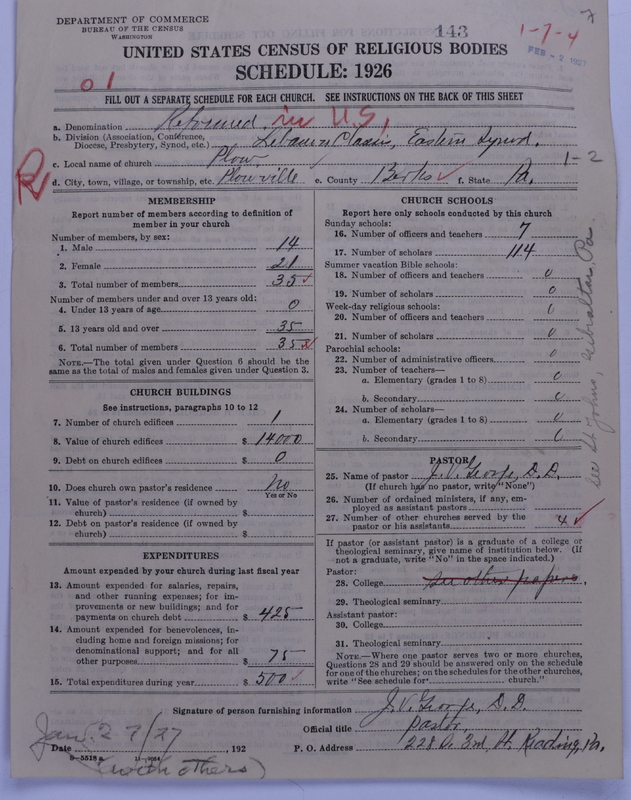 DEPARTMENT OF COMMERCE
BUREAU OF THE CENSUS
WASHINGTON
143
1-7-4
7
FEB - 2 1927
UNITED STATES CENSUS OF RELIGIOUS BODIES
SCHEDULE: 1926
01
FILL OUT A SEPARATE SCHEDULE FOR EACH CHURCH. SEE INSTRUCTIONS ON THE BACK OF THIS SHEET
a. Denomination Reformed in U.S.
b. Division (Association, Conference, Diocese, Presbytery, Synod, etc.) Lebanon Classis, Eastern Synod.
c. Local name of church Plow
1-2
R
d. City, town, village, or township, etc. Plowville e. County Berks f. State Pa.
MEMBERSHIP
Report number of members according to definition of
member in your church
Number of members, by sex:
1. Male 14
2. Female 21
3. Total number of members 35
Number of members under and over 13 years old:
4. Under 13 years of age 0
5. 13 years old and over 35
6. Total number of members 35
NOTE.—The total given under Question 6 should be the
same as the total of males and females given under Question 3.
CHURCH BUILDINGS
See instructions, paragraphs 10 to 12
7. Number of church edifices 1
8. Value of church edifices $ 14000
9. Debt on church edifices $ 0
10. Does church own pastor's residence No
Yes or No
11. Value of pastor's residence (if owned by
church) $
12. Debt on pastor's residence (if owned by
church) $
EXPENDITURES
Amount expended by your church during last fiscal year
13. Amount expended for salaries, repairs,
and other running expenses; for im-
provements or new buildings; and for
payments on church debt $ 425
14. Amount expended for benevolences, in-
cluding home and foreign missions; for
denominational support; and for all
other purposes $ 75
15. Total expenditures during year $ 500
CHURCH SCHOOLS
Report here only schools conducted by this church
Sunday schools:
16. Number of officers and teachers 7
17. Number of scholars 114
Summer vacation Bible schools:
18. Number of officers and teachers 0
19. Number of scholars 0
Week-day religious schools:
20. Number of officers and teachers 0
21. Number of scholars 0
Parochial schools:
22. Number of administrative officers 0
23. Number of teachers—
a. Elementary (grades 1 to 8) 0
b. Secondary 0
24. Number of scholars—
a. Elementary (grades 1 to 8) 0
b. Secondary 0
PASTOR
25. Name of pastor J. V. George, D.D.
(If church has no pastor, write "None")
26. Number of ordained ministers, if any, em-
ployed as assistant pastors
27. Number of other churches served by the
pastor or his assistants 4
If pastor (or assistant pastor) is a graduate of a college or
theological seminary, give name of institution below. (If
not a graduate, write "No" in the space indicated.)
Pastor:
28. College see other papers.
29. Theological seminary
Assistant pastor:
30. College
31. Theological seminary
NOTE.—Where one pastor serves two or more churches,
Questions 28 and 29 should be answered only on the schedule
for one of the churches; on the schedules for the other churches,
write "See schedule for church."
See St Johns, Gibraltar, Pa.
Signature of person furnishing information J. V. George, D.D.
Official title Pastor
Jan. 27/27
Date , 192
P. O. Address 228 S. 3rd St. Reading, Pa.
8-5518a
(with others)